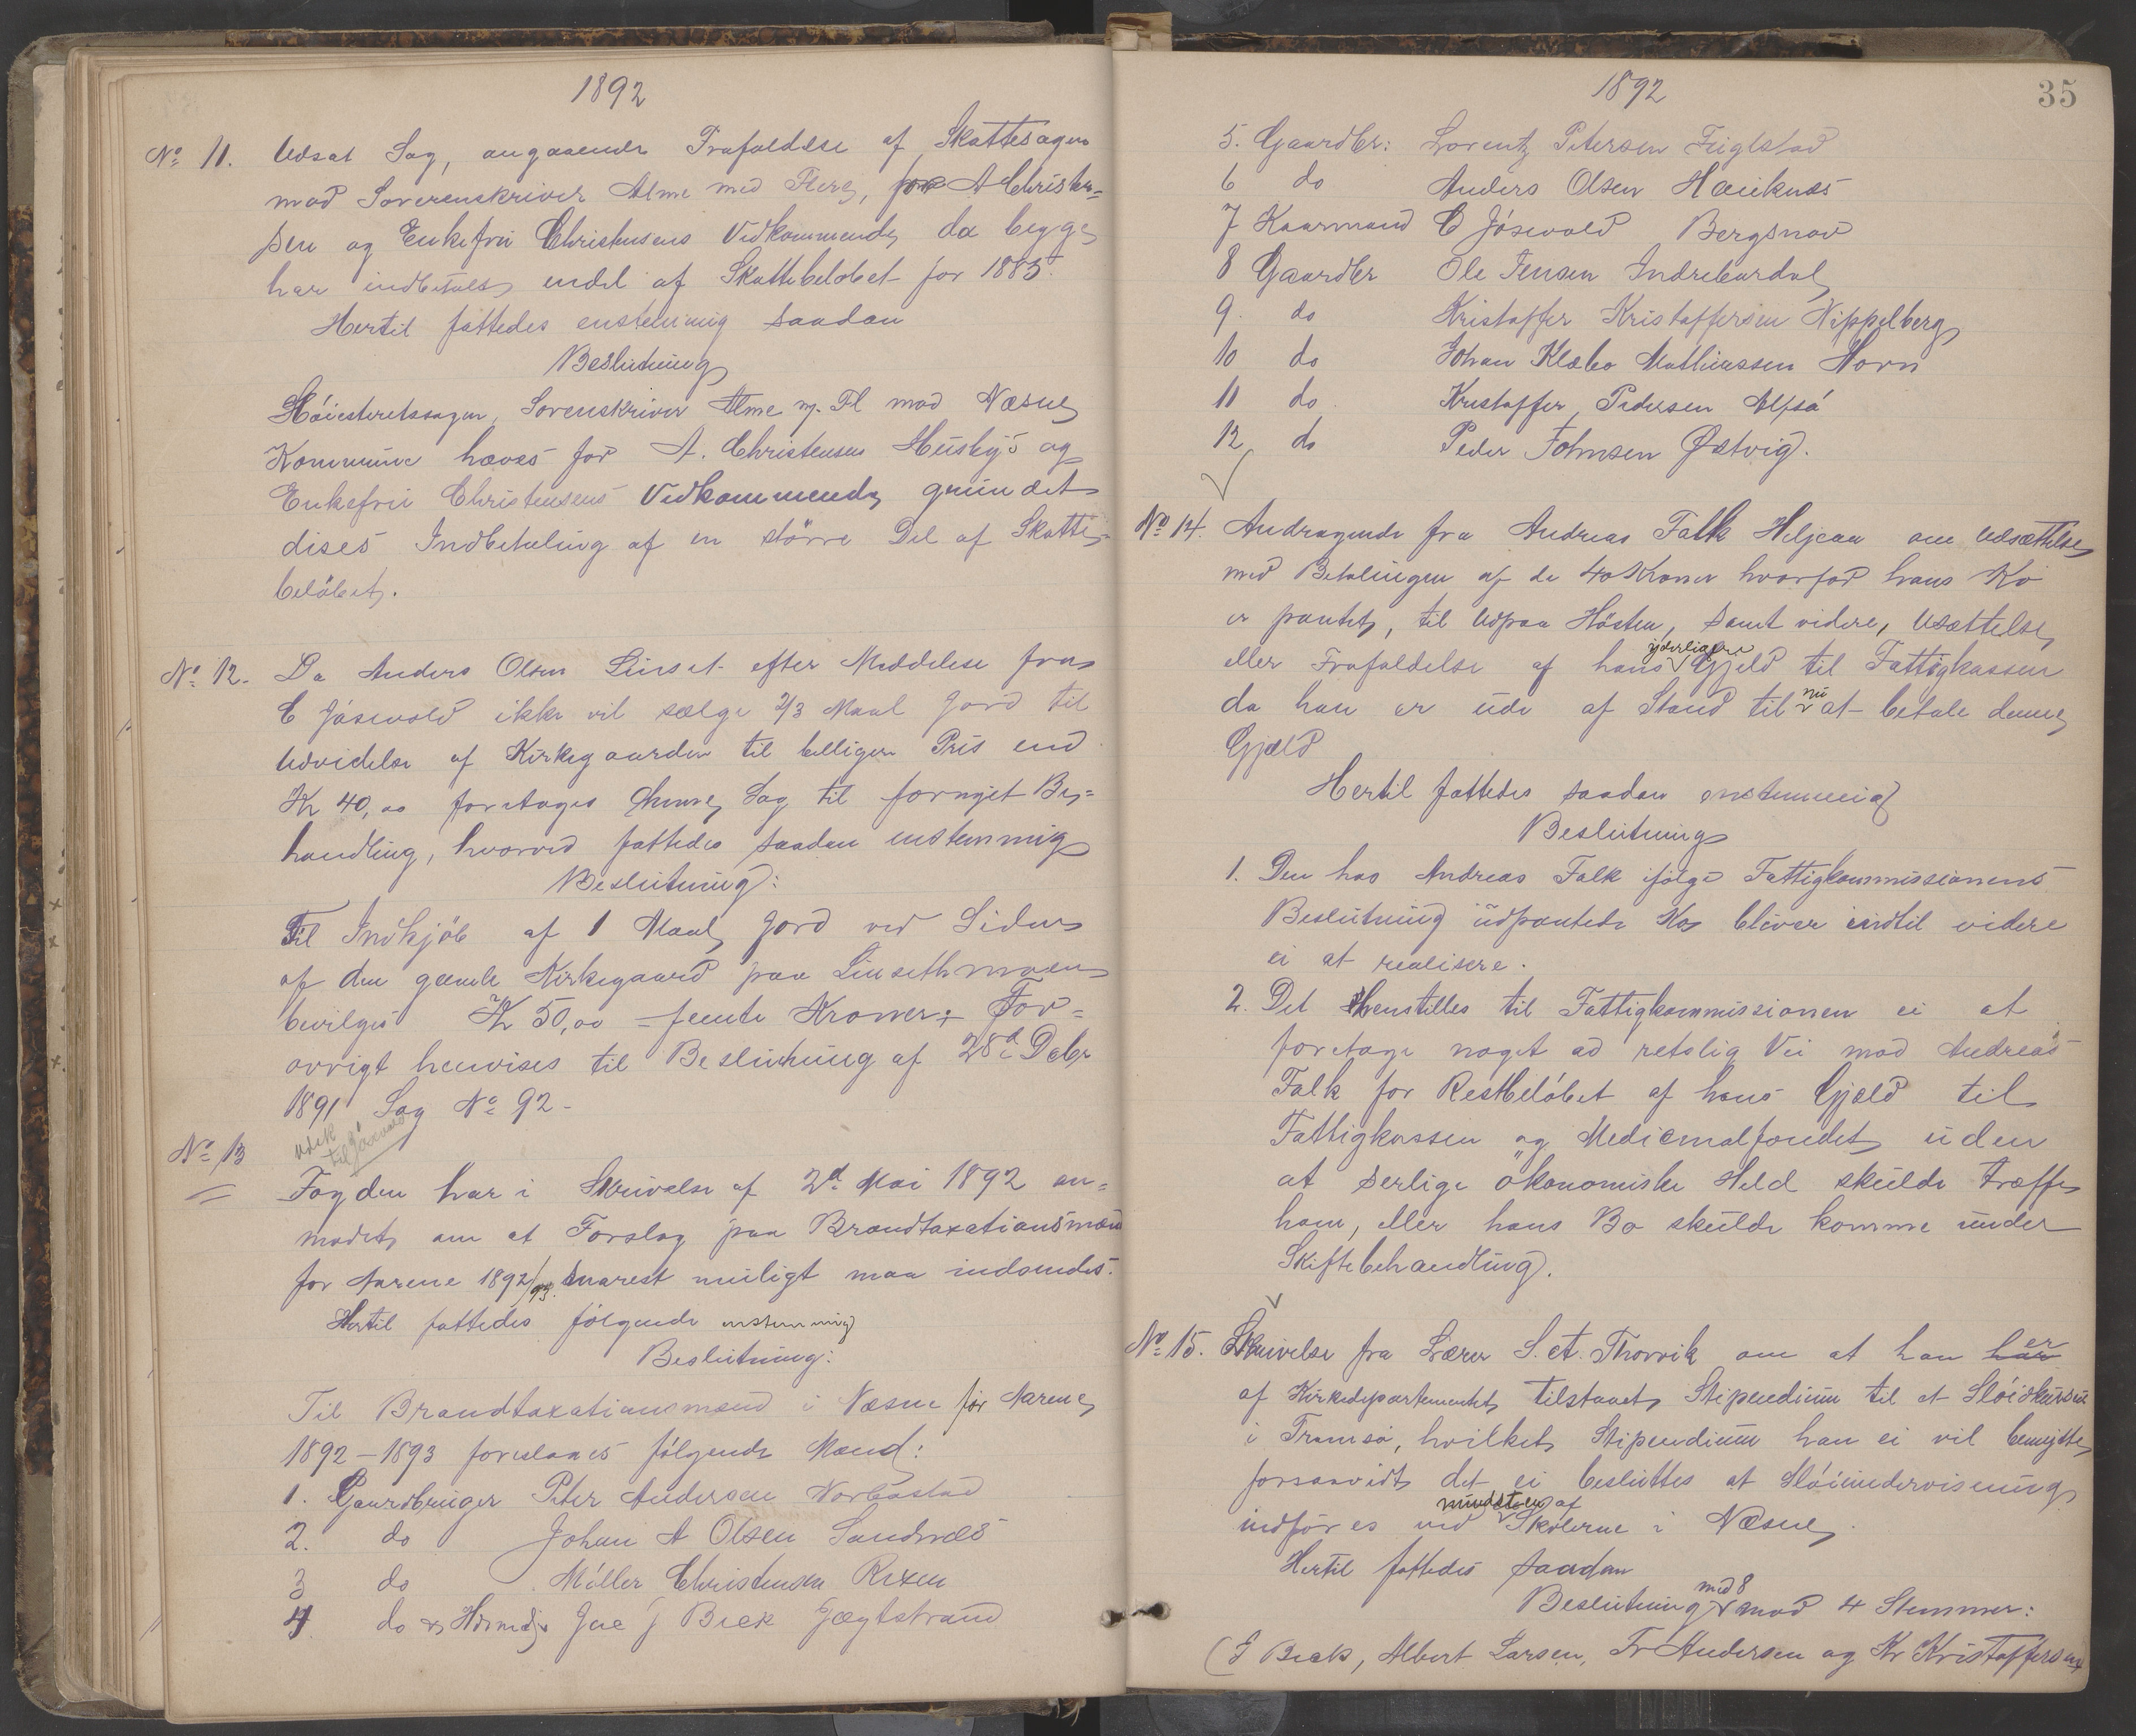 1892
No 11. Udsat Sag, angaaende Frafaldelse af Skattesagen
mod Sorenskriver Alme med Flere, for A Christen=
sen og Enkefru Christensens Vedkommende, da begge
har indbetalt endel af Skattebeløbet for 1885.
Hertil fattedes enstemmig saadan
Beslutning
Høiesteretssagen, Sorenskriver Alme m. Fl mod Næsne
Kommune hæves for A. Christensen Husby's og
Enkefru Christensens Vedkommende grundet
disses Indbetaling af en større Del af Skatte=
beløbet.
No 12. Da Anders Olsen Linset efter Meddelese fra
C Jøsevold ikke vil sælge 2/3 Maal Jord til
Udvidelse af Kirkegaarden til billigere Pris end
Kr 40,00 foretages denne Sag til fornyet Be=
handling, hvorved fattedes saadan enstemmig
Beslutning:
Til Indkjøb af 1 Maal Jord ved Siden
af den gamle Kirkegaard paa Linsethmoen
bevilges Kr 50,00 - femti Kroner; For=
øvrigt henvises til Beslutning af 28d Debr
1891 Sag No 92-
Udsk
til Jøsevold
No 13
Fogden har i Skrivelse af 2d Mai 1892 an=
modet om at Forslag paa Brandtaxationsmænd
for Aarene 1892/93. snarest muligt maa indsendes.
Hertil fattedes følgende enstemmig
Beslutning:
Til Brandtaxationsmænd i Næsne for Aarene
1892-1893 foreslaaes følgende Mænd:
1. Gaardbruger Peter Andersen Norbostad
2. do Johan A Olsen Sandnæs
3 do Møller Christensen Rexen
4 do & J Beck Jægtstrand
1892
35
5. Gaardbr: Lorentz Petersen Fuglstad
6 do Anders Olsen Hæiknæs
7 Kaarmand C Jøsevold Bergsnov
8 Gaardbr Ole Jensen Indrebardal
9. do Kristoffer Kristoffersen Nippelberg
10 do Johan Klæbo Mathiassen Horn
11 do. Kristoffer Pedersen Alfsø
12 do Peder Johnsen Østvig.
No 14. Andragende fra Andreas Falk Heljeaa om Udsættelse
med Betalingen af de 40 Kroner hvorfor hans Ko
er pantet, til Udpaa Høsten, samt videre, Usættelse
eller Frafaldelse af hans yderligere Gjeld til Fattigkassen
da han er ude af Stand til nu at betale denne
Gjæld
Hertil fattedes saadan enstemmig
Beslutning
1. Den hos Andreas Falk ifølge Fattigkommissionens
Beslutning udpantede Ko bliver indtil videre
ei at realisere.
2. Det henstilles til Fattigkommissionen ei at
foretage noget ad retslig Vei mod Andreas
Falk for Restbeløbet af hans Gjæld til
Fattigkassen og Medicinalfondet uden
at særlige økonomiske Held skulde træffe
ham, eller hans Bo skulde komme under
Skiftebehandling.
No 15. Skrivelse fra Lærer S. A. Thorvik om at han har er
af Kirkedepartementet tilstaaet Stipendium til et Sløidkursus
i Tromsø, hvilket Stipendium han ei vil benytte
forsaavidt det ei besluttes at Sløiundervisning
indføres ved mindst en af Skolerne i Næsne.
Hertil fattedes saadan
Beslutning med 8 mod 4 Stemmer:
(J Beck, Albert Larsen, Fr Andersen og Kr Kristoffersen